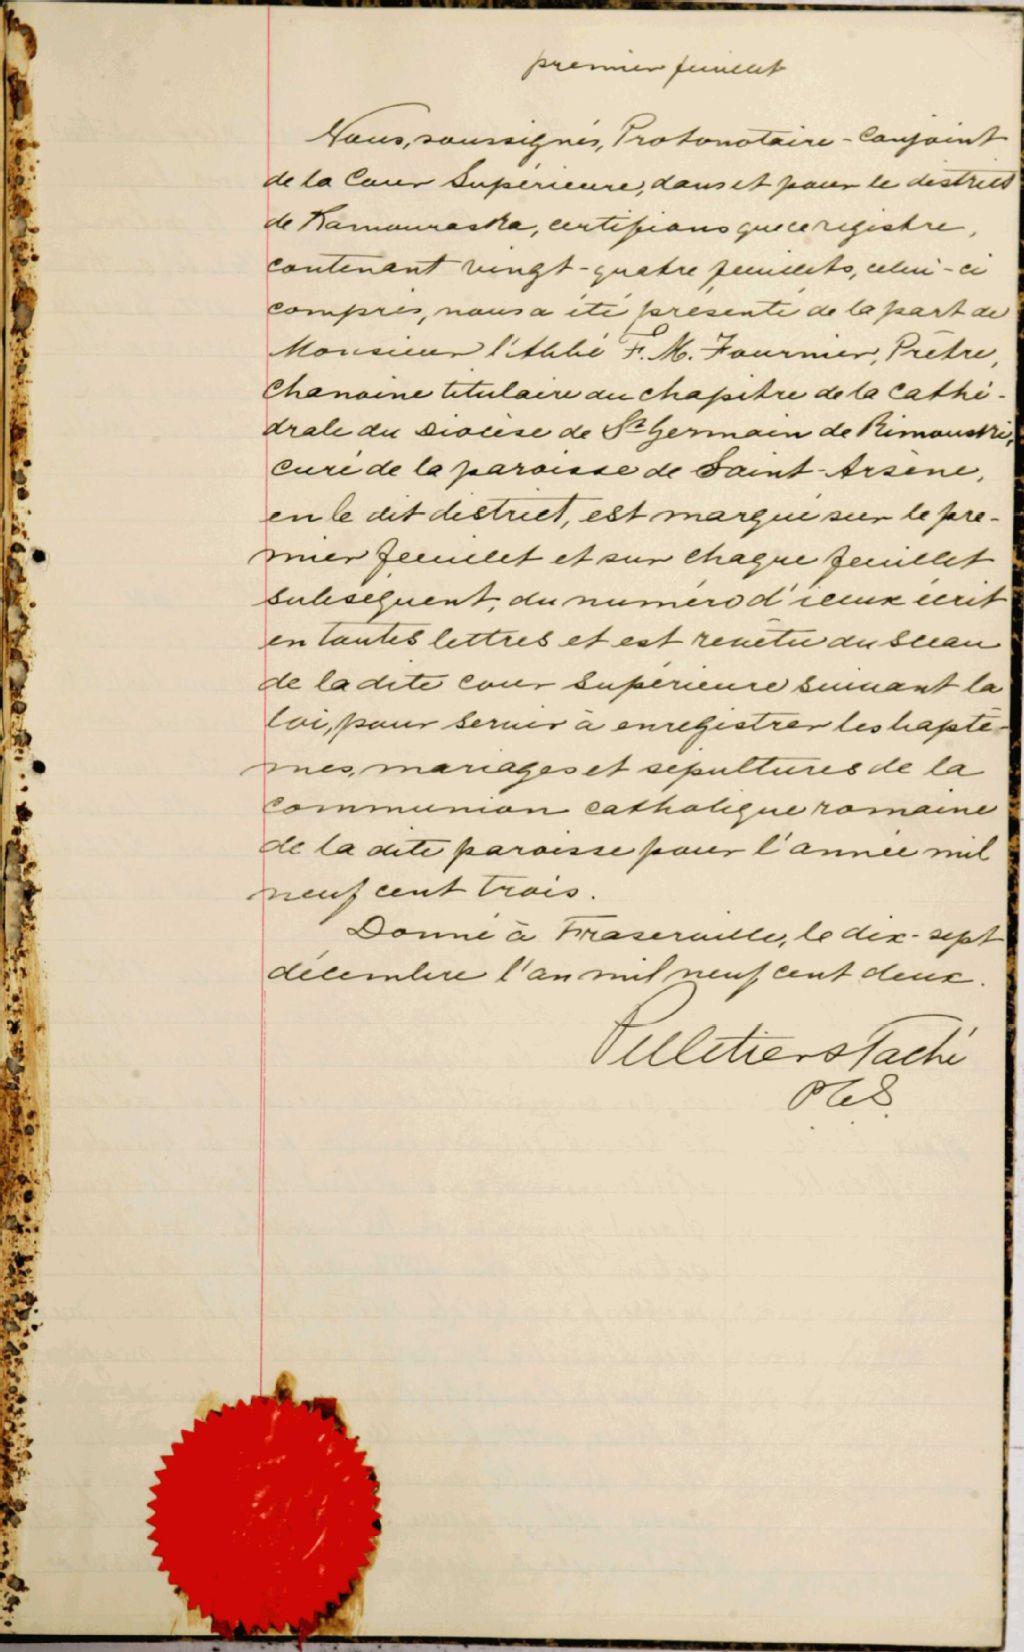 premier feuillet
Nous, soussignés, Protonotaire-Conjoint
de la Cour Supérieure, dans et pour le district
de Kamouraska, certifions que ce registre,
contenant vingt-quatre feuillets, celui-ci
compris, nous a été présenté de la part de
Monsieur l'Abbé F. M. Fournier, Prêtre,
Chanoine titulaire du chapitre de la Cathé-
drale du Diocèse de St Germain de Rimouski,
curé de la paroisse de Saint-Arsène,
en le dit district, est marqué sur le pre-
mier feuillet et sur chaque feuillet
subséquent, du numéro d'iceux écrit
en toutes lettres et est revêtu du sceau
de la dite cour supérieure suivant la
loi, pour servir à enregistrer les baptê-
mes, mariages et sépultures de la
communion catholique romaine
de la dite paroisse pour l'année mil
neuf cent trois.
Donné à Fraserville, le dix-sept
décembre l'an mil neuf cent deux.
Pelletier & Taché
P.C.S.